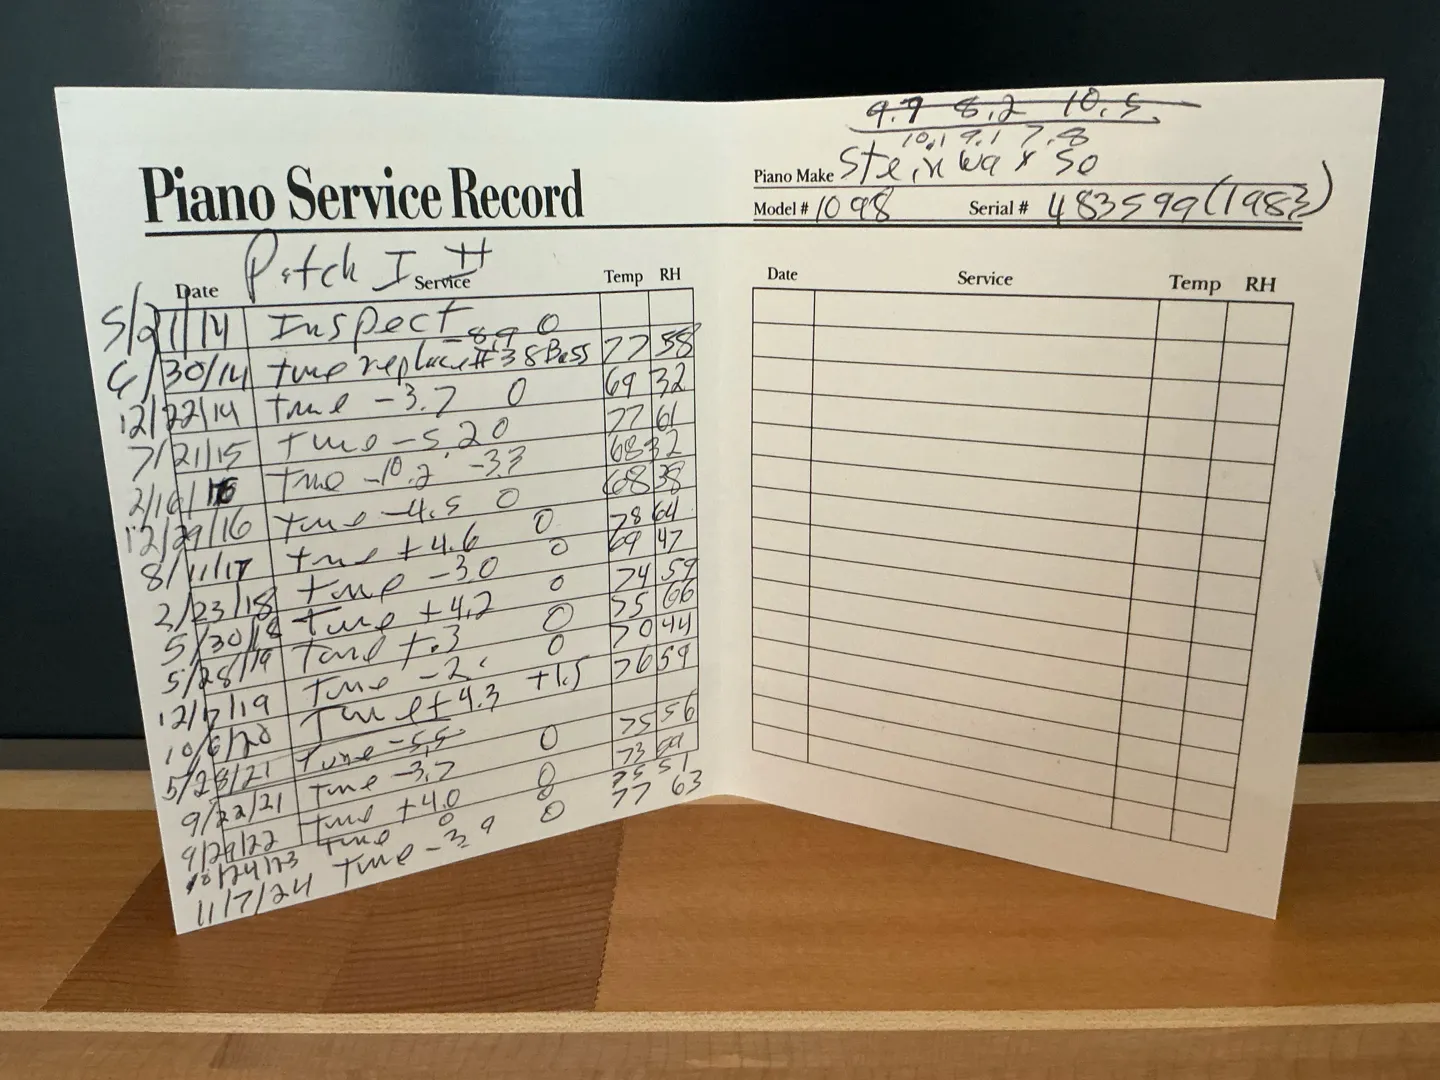 9.9 8.2 10.5
10.1 9.1 7.8
Piano Service Record
Piano Make Steinway So
Model # 1098 Serial # 483599 (1983)
Pitch I II
Date Service Temp RH
5/21/14 Inspect -8.9 0
6/30/14 tune replace #38 Bass 77 58
12/22/14 tune -3.7 0 69 32
7/21/15 tune -5.2 0 77 61
2/16/16 tune -10.2 -3.3 68 32
12/29/16 tune -4.5 0 68 38
8/11/17 tune +4.6 0 78 64
2/23/18 tune -3.0 0 69 47
5/30/18 tune +4.2 0 74 59
5/28/19 tune +.3 0 55 66
12/17/19 tune -2. 0 70 44
10/6/20 Tune +4.3 +1.5 76 59
5/28/21 Tune -5.5
9/22/21 tune -3.7 0 75 56
9/29/22 tune +4.0 0 73
10/24/23 tune 0 0 75 51
11/7/24 tune -3.9 0 77 63
Date Service Temp RH